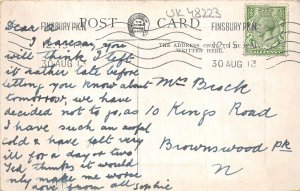 UK 48223
FINSBURY PK.N
30 AUG 13
POST CARD
FINSBURY PK.N
30 AUG 13
THE ADDRESS ON
WRITTEN HERE.
Dear
I daresay you
will think I left
it rather late before
letting you know about
tomorrow, we have
decided not to go, as
I have such an awful
cold & have felt very
ill for a day or two
Ted thinks it would
only make me worse
Love from all Sophie
Mrs Brock
10 Kings Road
Brownswood Pk
N